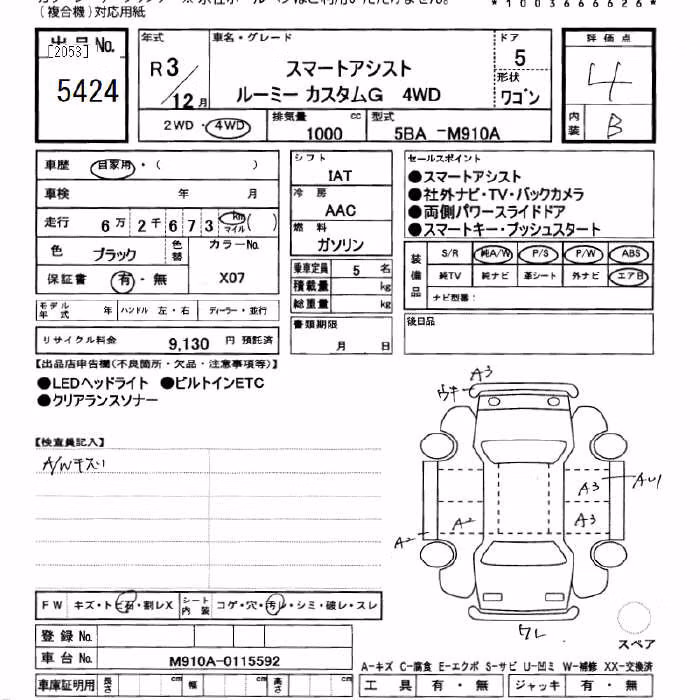 (複合機)対応用紙
*1003666626*
出品No.
[2053]
5424
年式
R3/12月
車名・グレード
スマートアシスト
ルーミー カスタムG 4WD
ドア
5
形状
ワゴン
評価点
4
内装
B
2WD・4WD
排気量
1000 cc
型式
5BA -M910A
車歴 自家用・( )
車検 年 月
走行 6万2千673 km マイル ( )
色 ブラック 色替 カラーNo. X07
保証書 有・無
モデル年式 年 ハンドル 左・右 ディーラー・並行
リサイクル料金 9,130 円 預託済
シフト
IAT
冷房
AAC
燃料
ガソリン
乗車定員 5 名
積載量 kg
総重量 kg
書類期限
月 日
セールスポイント
●スマートアシスト
●社外ナビ・TV・バックカメラ
●両側パワースライドドア
●スマートキー・プッシュスタート
装備品
S/R 純A/W P/S P/W ABS
純TV 純ナビ 革シート 外ナビ エアB
ナビ型番:
後日品
【出品店申告欄(不良箇所・欠品・注意事項等)】
●LEDヘッドライト ●ビルトインETC
●クリアランスソナー
【検査員記入】
A/Wキズ
A3
A3
A3
A2
A2
ワレ
スペア
FW キズ・トビ石・割レX シート内装 コゲ・穴・汚レ・シミ・破レ・スレ
登録No.
車台No. M910A-0115592
車庫証明用 長さ cm 幅 cm 高さ cm
A-キズ C-腐食 E-エクボ S-サビ U-凹ミ W-補修 XX-交換済
工具 有・無 ジャッキ 有・無